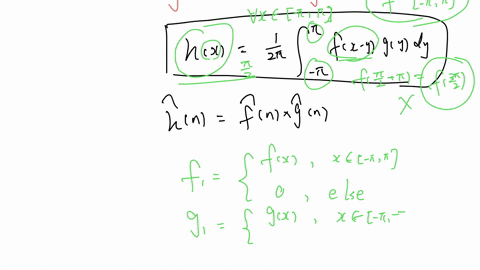 ∀x∈[-π,π] f [-π,π]
h(x) = 1/2π ∫_{-π}^{π} f(x-y) g(y) dy
π/2 f(π/2+π) = f(3π/2)
X
ĥ(n) = f̂(n) × ĝ(n)
f₁ = { f(x), x∈[-π,π]
0, else
g₁ = { g(x), x∈[-π,-